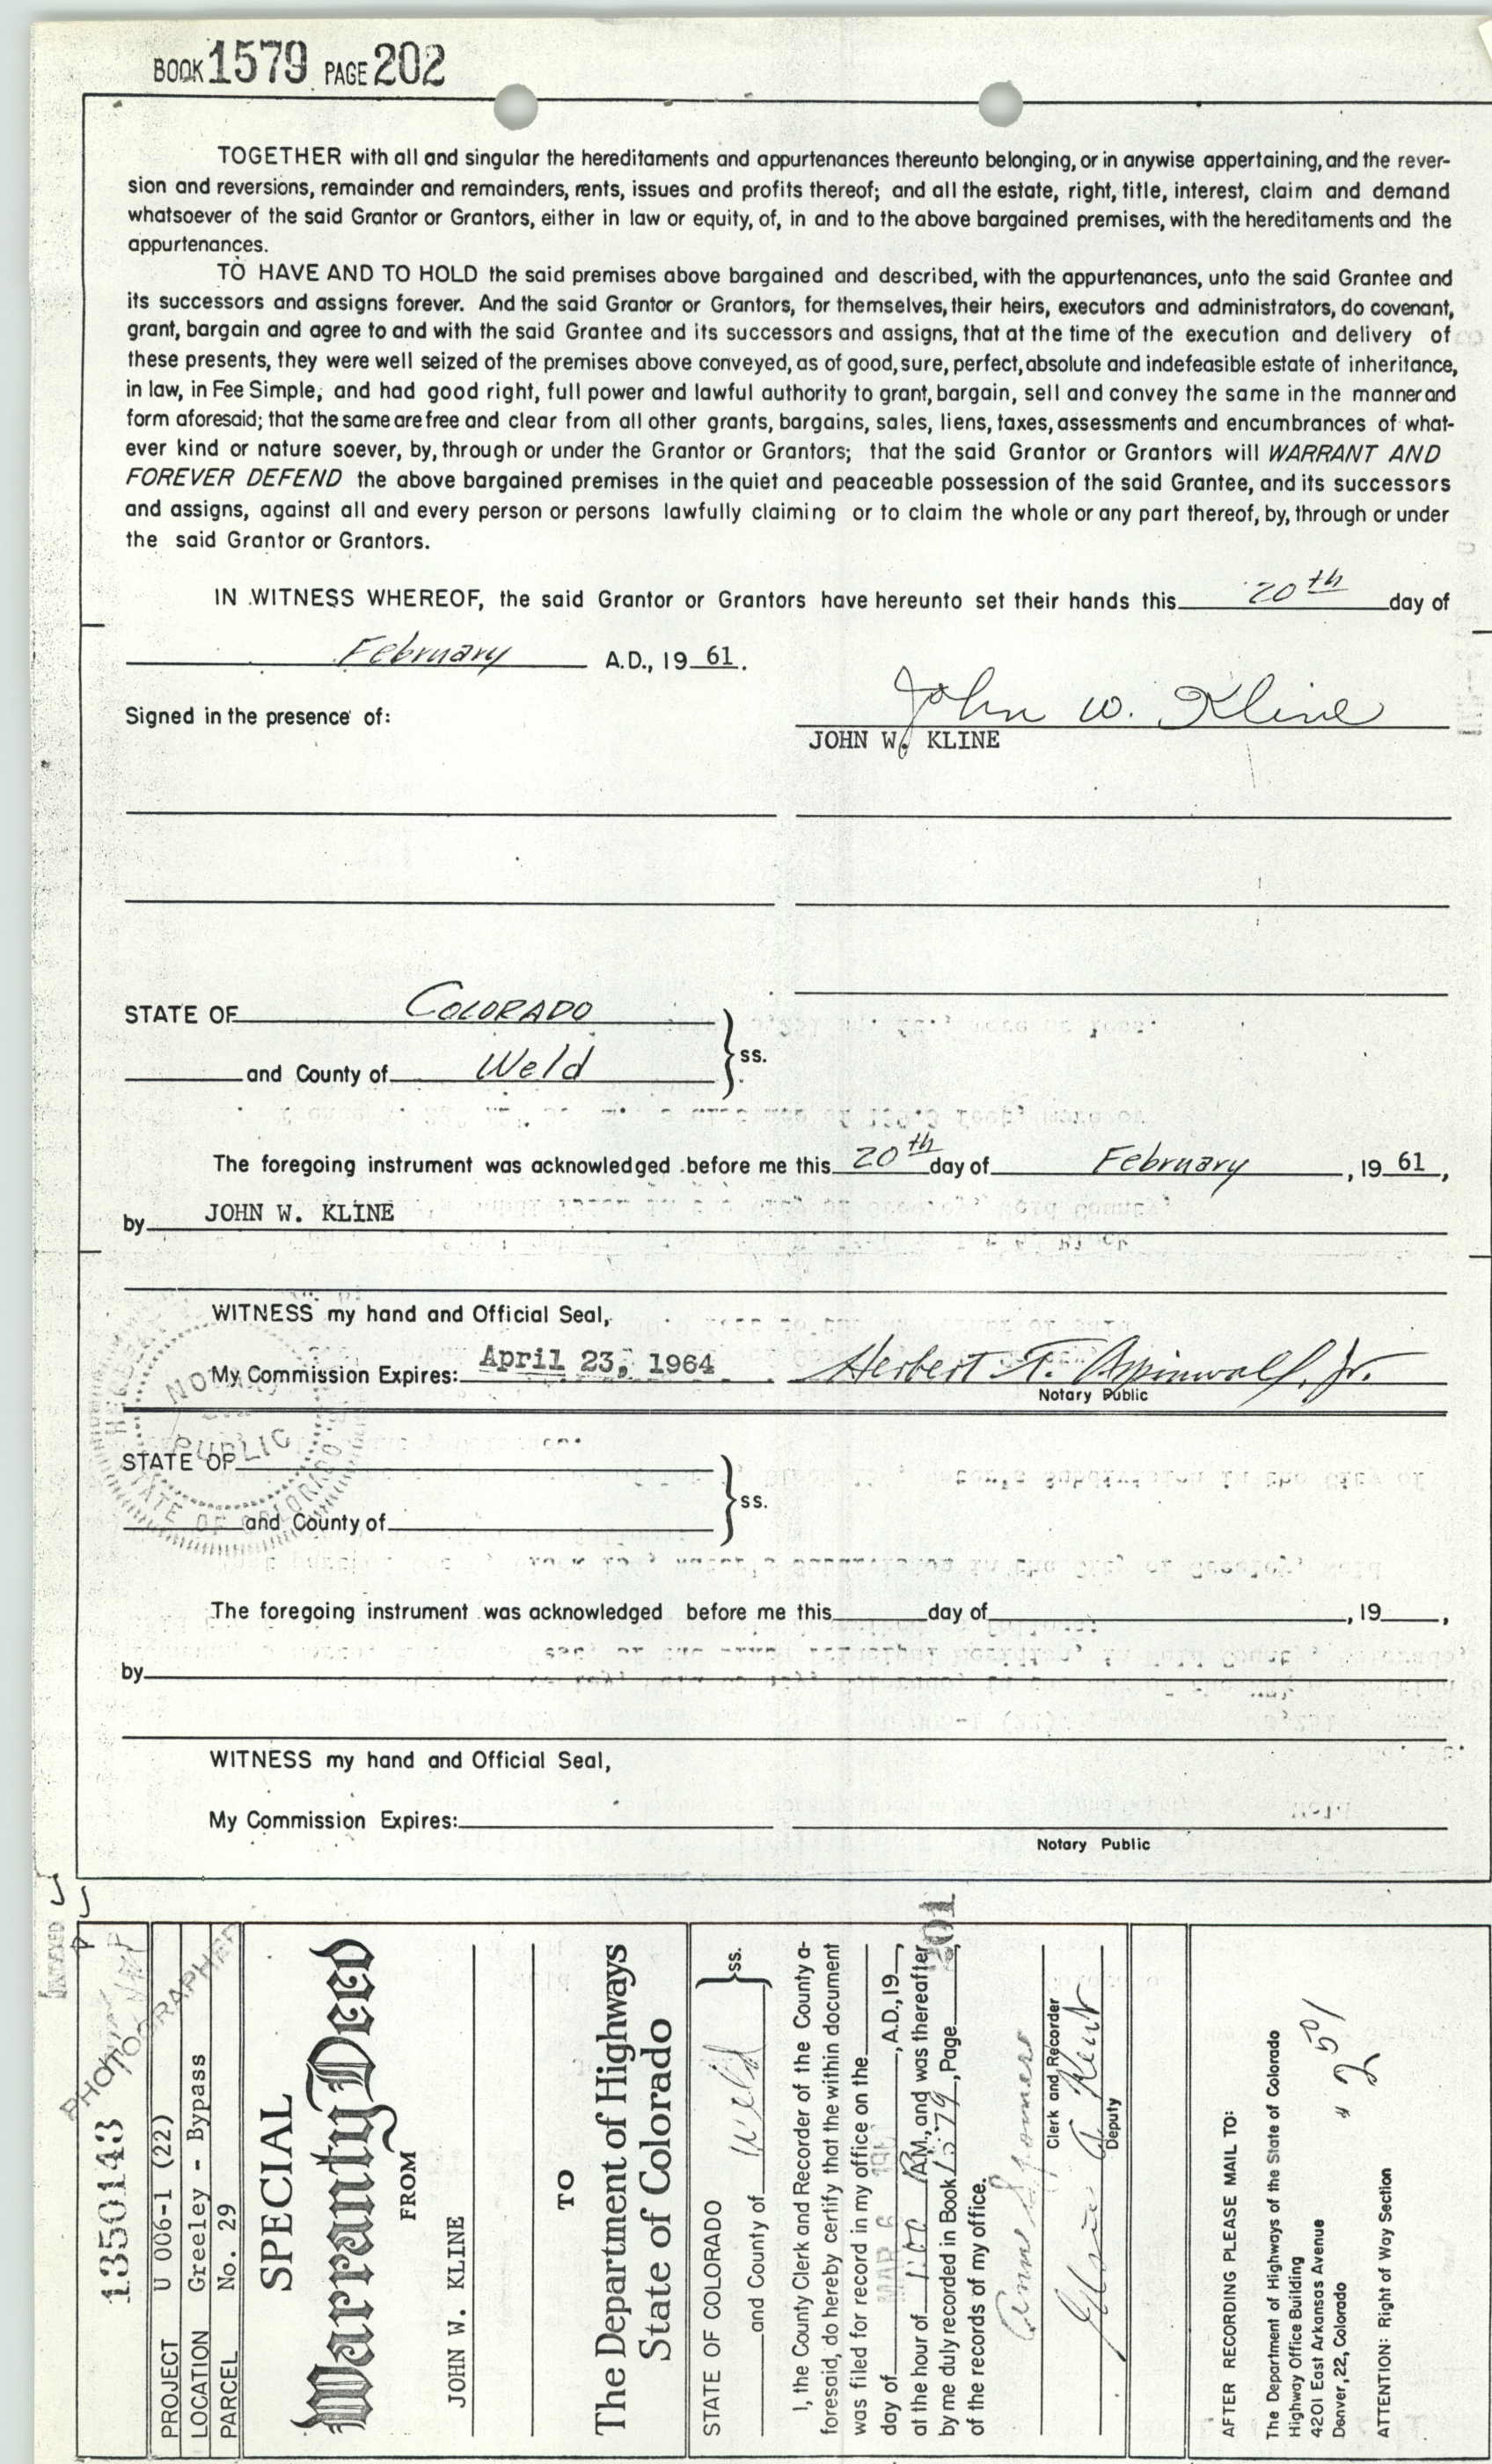 BOOK 1579 PAGE 202
TOGETHER with all and singular the hereditaments and appurtenances thereunto belonging, or in anywise appertaining, and the rever-
sion and reversions, remainder and remainders, rents, issues and profits thereof; and all the estate, right, title, interest, claim and demand
whatsoever of the said Grantor or Grantors, either in law or equity, of, in and to the above bargained premises, with the hereditaments and the
appurtenances.
TO HAVE AND TO HOLD the said premises above bargained and described, with the appurtenances, unto the said Grantee and
its successors and assigns forever. And the said Grantor or Grantors, for themselves, their heirs, executors and administrators, do covenant,
grant, bargain and agree to and with the said Grantee and its successors and assigns, that at the time of the execution and delivery of
these presents, they were well seized of the premises above conveyed, as of good, sure, perfect, absolute and indefeasible estate of inheritance,
in law, in Fee Simple, and had good right, full power and lawful authority to grant, bargain, sell and convey the same in the manner and
form aforesaid; that the same are free and clear from all other grants, bargains, sales, liens, taxes, assessments and encumbrances of what-
ever kind or nature soever, by, through or under the Grantor or Grantors; that the said Grantor or Grantors will WARRANT AND
FOREVER DEFEND the above bargained premises in the quiet and peaceable possession of the said Grantee, and its successors
and assigns, against all and every person or persons lawfully claiming or to claim the whole or any part thereof, by, through or under
the said Grantor or Grantors.
IN WITNESS WHEREOF, the said Grantor or Grantors have hereunto set their hands this 20th day of
February A.D., 19 61.
John W. Kline
Signed in the presence of:
JOHN W. KLINE
STATE OF COLORADO
and County of Weld
ss.
The foregoing instrument was acknowledged before me this 20th day of February, 19 61,
by JOHN W. KLINE
WITNESS my hand and Official Seal,
My Commission Expires: April 23, 1964 Herbert T. Aspinwall, Jr.
Notary Public
NOTARY PUBLIC
STATE OF COLORADO
STATE OF
and County of
ss.
The foregoing instrument was acknowledged before me this day of , 19 ,
by
WITNESS my hand and Official Seal,
My Commission Expires:
Notary Public
INDEXED
PHOTOGRAPHED
1350143
PROJECT U 006-1 (22)
LOCATION Greeley - Bypass
PARCEL No. 29
SPECIAL
Warranty Deed
FROM
JOHN W. KLINE
TO
The Department of Highways
State of Colorado
STATE OF COLORADO
and County of Weld
ss.
I, the County Clerk and Recorder of the County a-
foresaid, do hereby certify that the within document
was filed for record in my office on the
day of MAR 6 , A.D., 19
at the hour of M., and was thereafter
by me duly recorded in Book 1579, Page 201
of the records of my office.
Clerk and Recorder
Deputy
AFTER RECORDING PLEASE MAIL TO:
The Department of Highways of the State of Colorado
Highway Office Building
4201 East Arkansas Avenue
Denver, 22, Colorado
ATTENTION: Right of Way Section